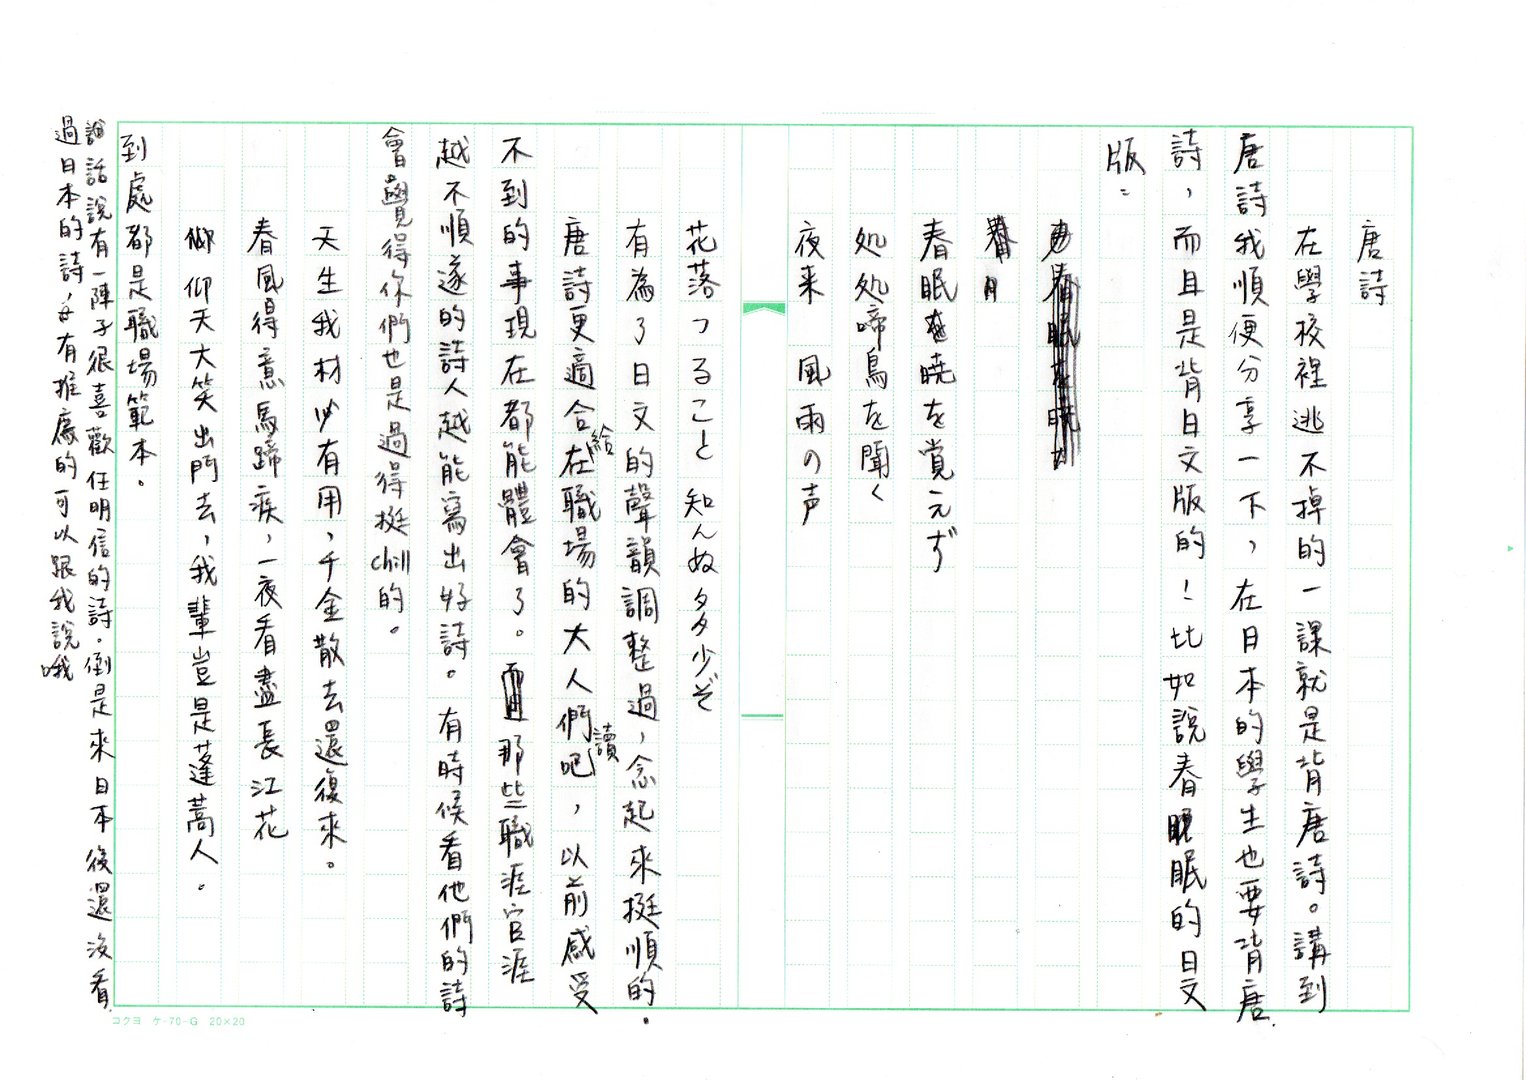 唐詩
在學校裡逃不掉的一課就是背唐詩。講到
唐詩我順便分享一下，在日本的學生也要背唐
詩，而且是背日文版的！比如說春眠的日文
版：
春眠暁を覚えず
処処啼鳥を聞く
夜来 風雨の声
花落つること 知んぬ多少ぞ
有為了日文的聲韻調整過，念起來挺順的。
唐詩更適合給在職場的大人們讀吧，以前感受
不到的事現在都能體會了。那些職涯官涯
越不順遂的詩人越能寫出好詩。有時候看他們的詩
會覺得你們也是過得挺chill的。
天生我材必有用，千金散去還復來。
春風得意馬蹄疾，一夜看盡長江花
仰天大笑出門去，我輩豈是蓬蒿人。
到處都是職場範本。
話說有一陣子很喜歡任明信的詩。倒是來日本後還沒看
過日本的詩，有推薦的可以跟我說哦
コクヨ ケ-70-G 20×20